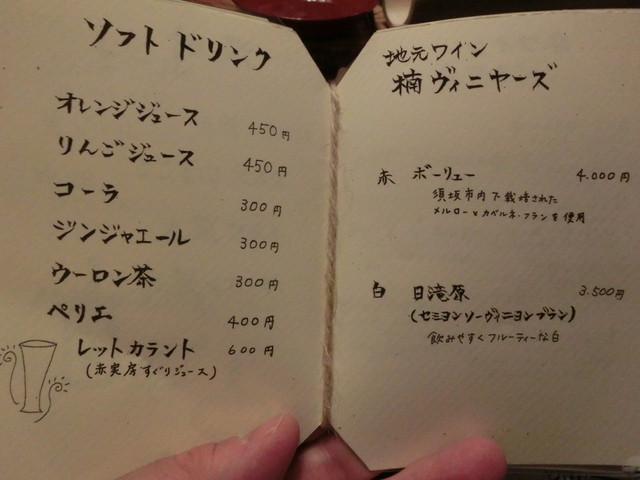 ソフト ドリンク
オレンジジュース 450円
りんごジュース 450円
コーラ 300円
ジンジャエール 300円
ウーロン茶 300円
ペリエ 400円
レットカラント 600円
(赤実房すぐりジュース)
地元ワイン
楠ヴィニヤーズ
赤 ボーリュー 4.000円
須坂市内で栽培された
メルローとカベルネ・フランを使用
白 日滝原 3.500円
(セミヨンソーヴィニヨンブラン)
飲みやすくフルーティーな白